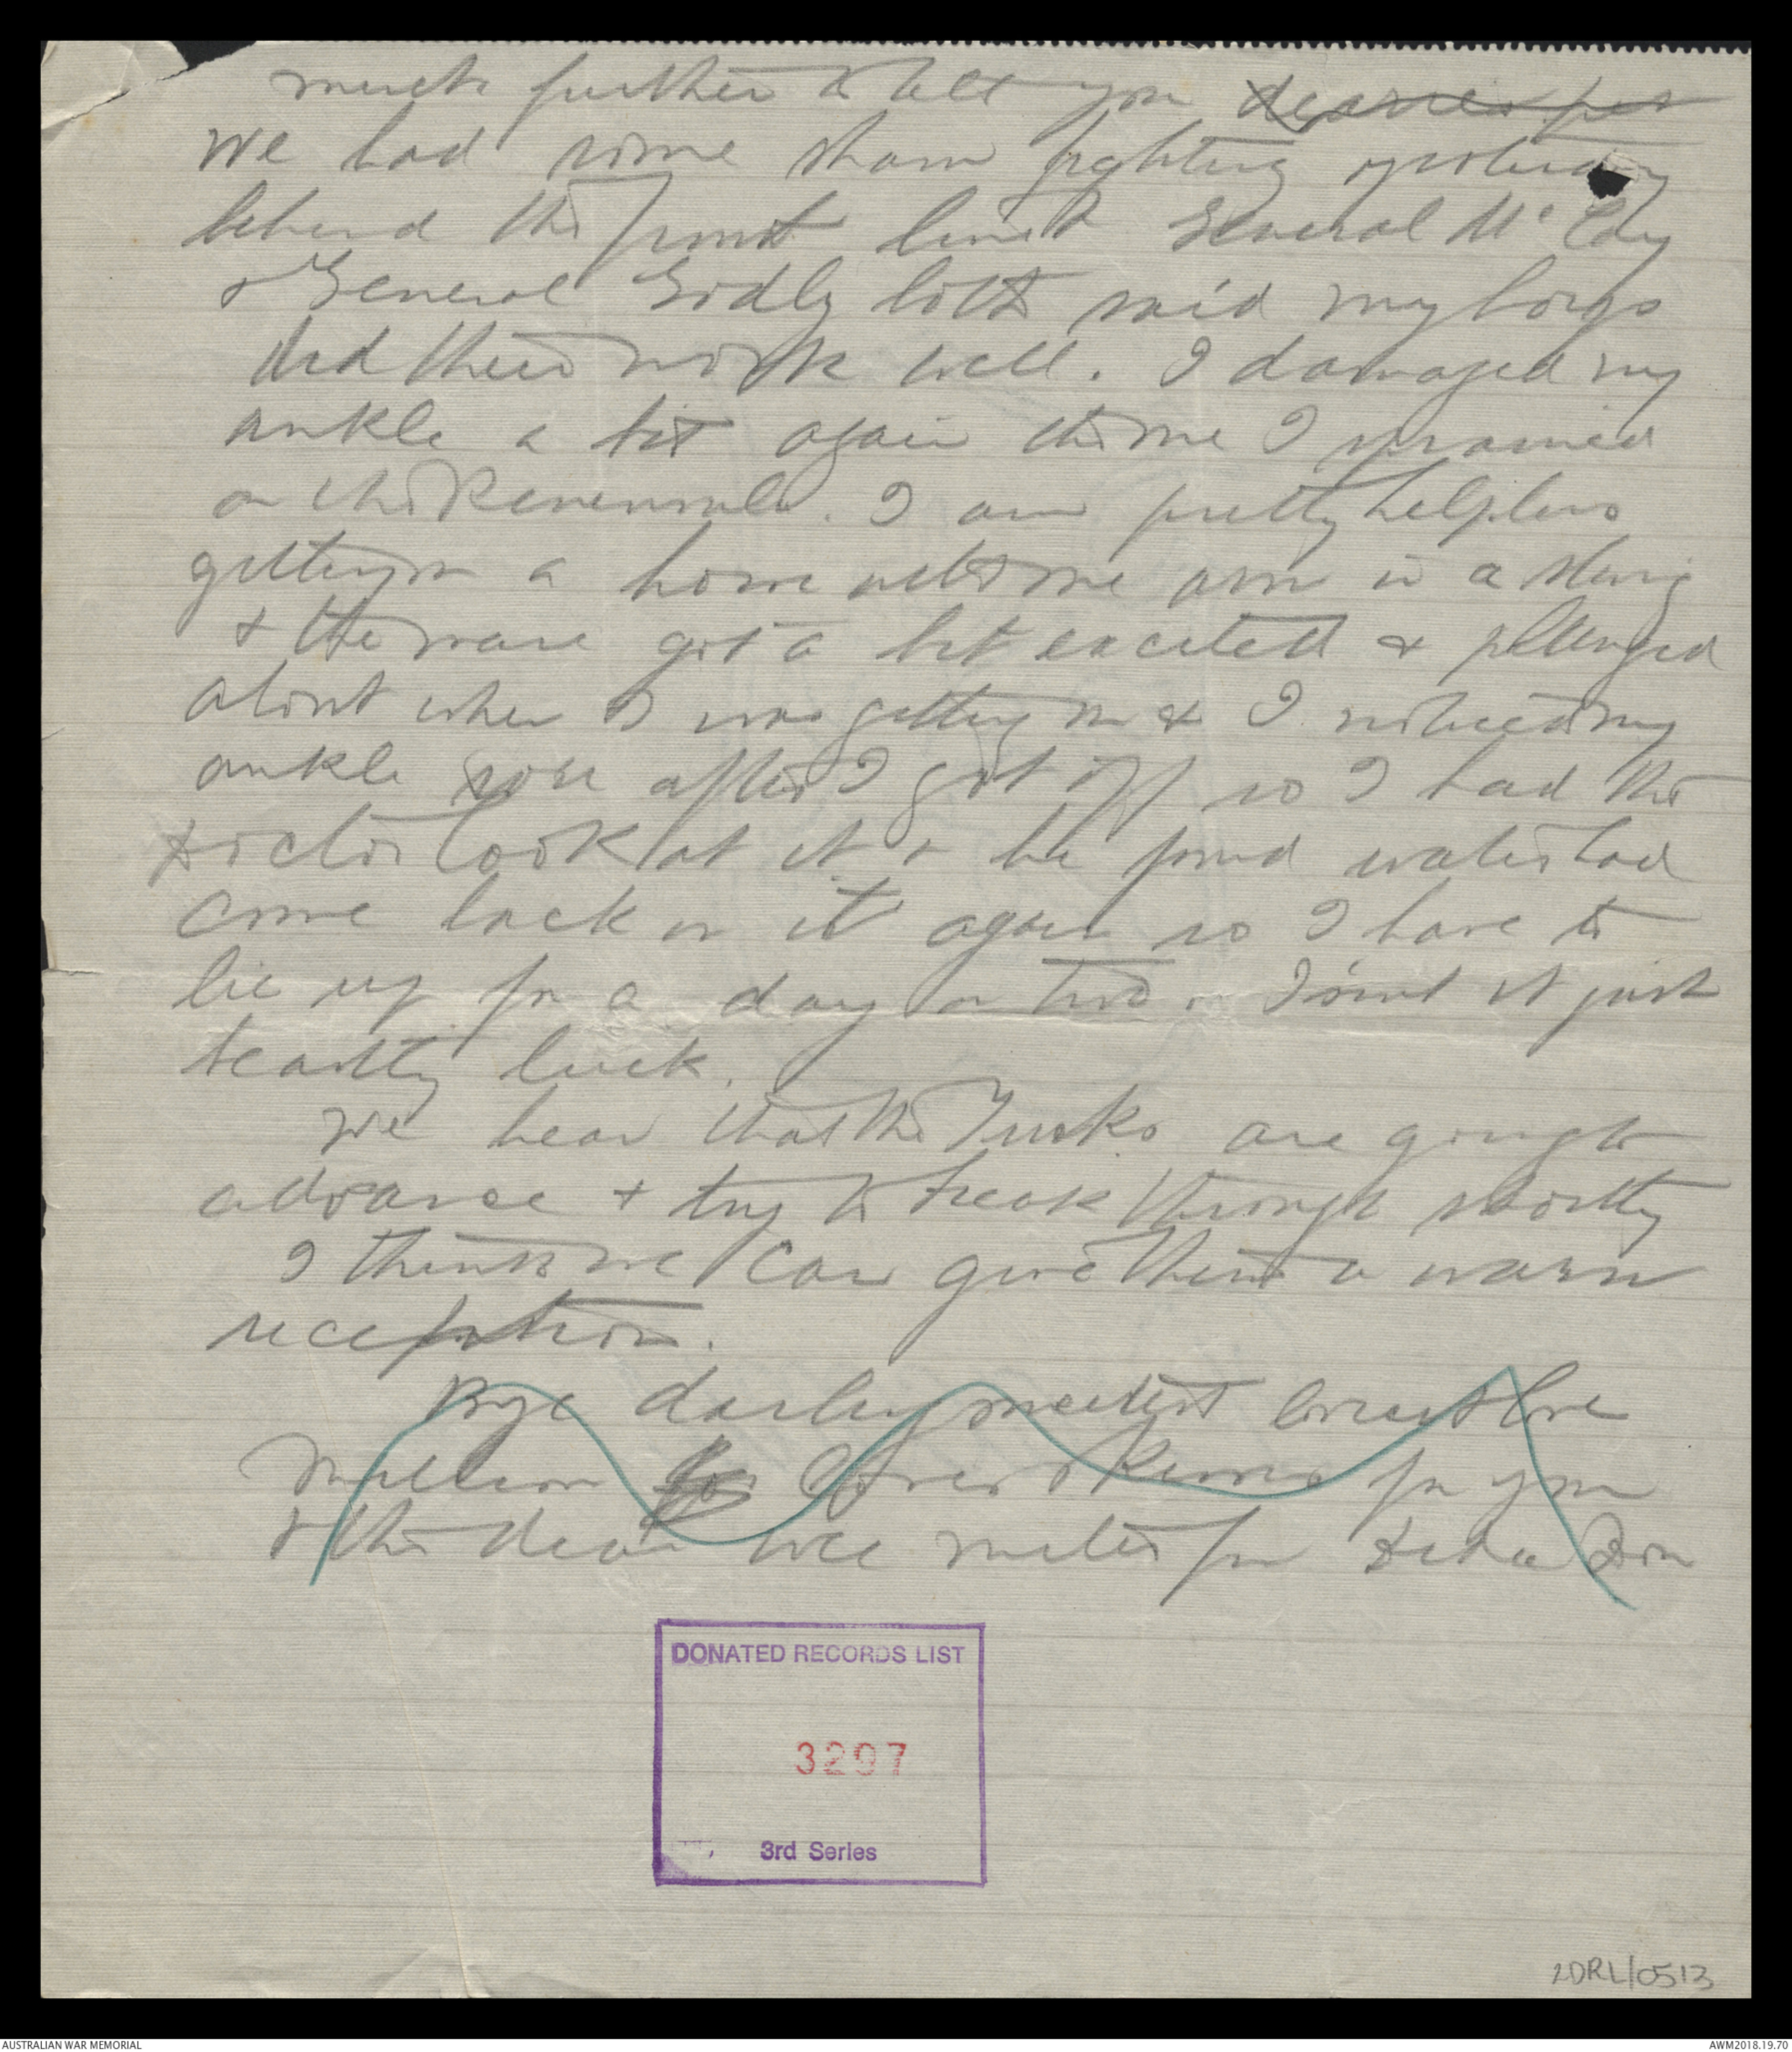 much further to tell you dearies pet
We had some sham fighting yesterday
behind the front line & General McCay
& General Godly both said my boys
did their work well. I damaged my
ankle a bit again the one I sprained
on the Peninsula. I am pretty helpless
getting on a horse with one arm in a sling
& the mare got a bit excited & plunged
about when I was getting on & I noticed my
ankle sore after I got off so I had the
doctor look at it & he found water had
come back on it again so I have to
lie up for a day or two. Isn't it just
beastly luck.
We hear that the Turks are going to
advance & try to break through shortly
I think we can give them a warm
reception.
Bye darling sweetest truest love
Million loves & kisses for you
& the dear wee mites from Dada Don
DONATED RECORDS LIST
3297
3rd Series
2DRL/0513
AUSTRALIAN WAR MEMORIAL
AWM2018.19.70